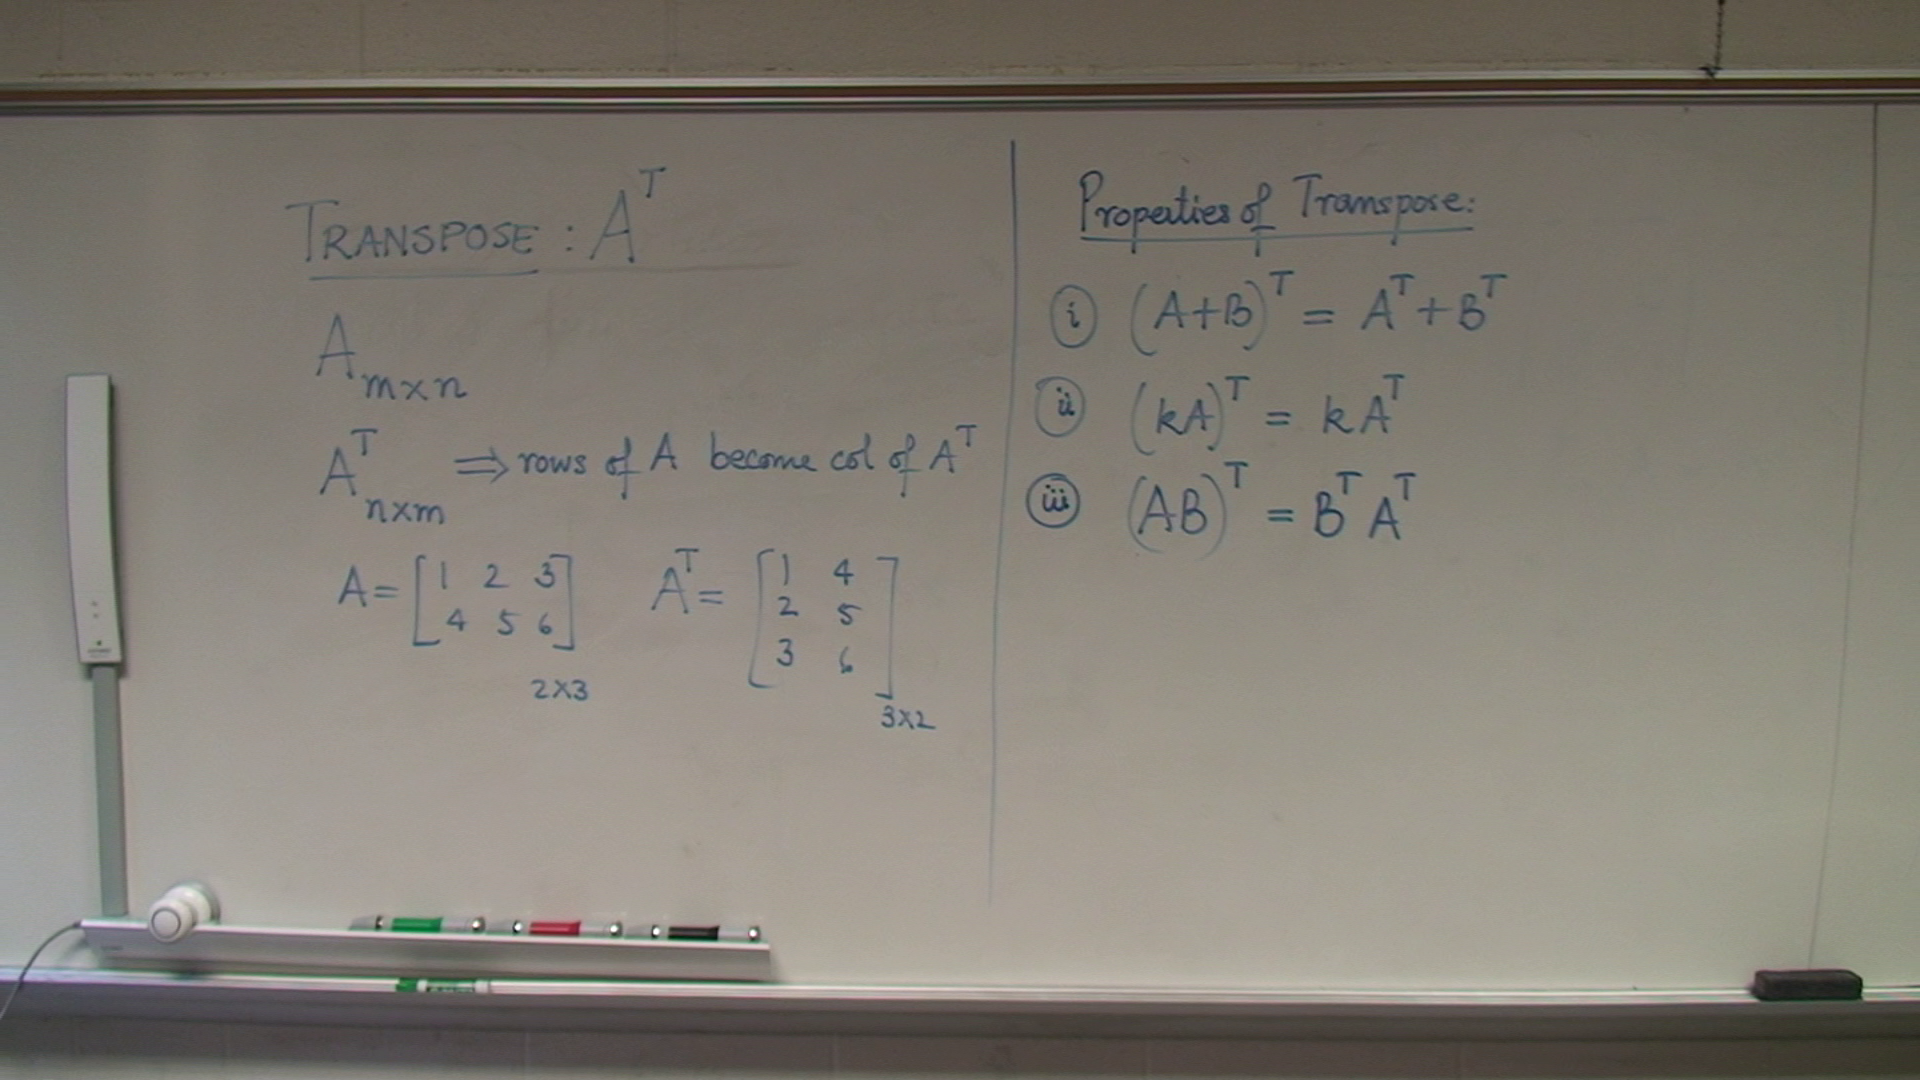 TRANSPOSE : Aᵀ
A m×n
Aᵀ n×m ⇒ rows of A become col of Aᵀ
A = [ 1 2 3
4 5 6 ] 2×3
Aᵀ = [ 1 4
2 5
3 6 ] 3×2
Properties of Transpose:
(i) (A+B)ᵀ = Aᵀ + Bᵀ
(ii) (kA)ᵀ = k Aᵀ
(iii) (AB)ᵀ = Bᵀ Aᵀ